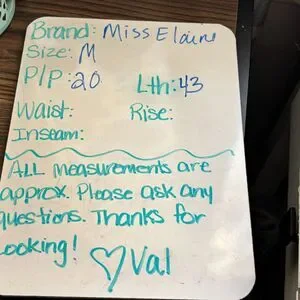 Brand: Miss Elaine
Size: M
P/P: 20 Lth: 43
Waist: Rise:
Inseam:
ALL measurements are
approx. Please ask any
questions. Thanks for
Looking!
♡ Val